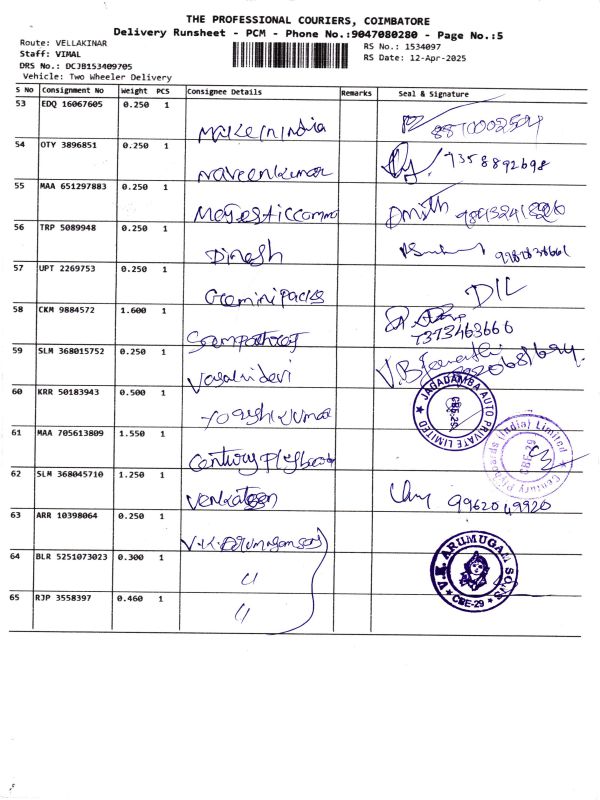 THE PROFESSIONAL COURIERS, COIMBATORE
Delivery Runsheet - PCM - Phone No.:9047080280 - Page No.:5
Route: VELLAKINAR
Staff: VIMAL
DRS No.: DCJB153409705
Vehicle: Two Wheeler Delivery
RS No.: 1534097
RS Date: 12-Apr-2025
S No Consignment No Weight PCS Consignee Details Remarks Seal & Signature
53 EDQ 16067605 0.250 1 Make in India
54 OTY 3896851 0.250 1 Naveenkumar 7358892698
55 MAA 651297883 0.250 1
56 TRP 5089948 0.250 1 Dinesh
57 UPT 2269753 0.250 1 Geminipacks DIL
58 CKM 9884572 1.600 1 Sampathraj 7373463666
59 SLM 368015752 0.250 1 Vasahidevi
60 KRR 50183943 0.500 1 Yogeshkumar JAGADAMBA AUTO PRIVATE LIMITED
61 MAA 705613809 1.550 1 Century Plyboards Century Plyboards (India) Limited CBE-29
62 SLM 368045710 1.250 1 Venkatesan 9962049920
63 ARR 10398064 0.250 1 V.K. Arumugam sons
64 BLR 5251073023 0.300 1 " V.K. ARUMUGAM SONS CBE-29
65 RJP 3558397 0.460 1 "